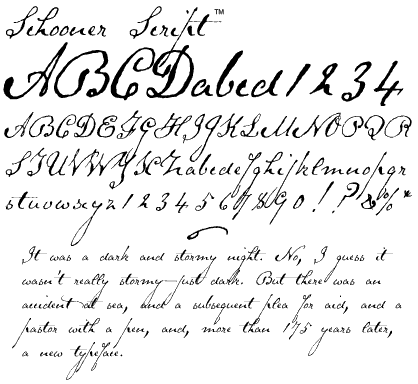 Schooner Script™
ABCDabcd1234
ABCDEFGHIJKLMNOPQR
STUVWYXZabcdefghijklmnopqr
stuvwxyz1234567890!?&%*
It was a dark and stormy night. No, I guess it
wasn't really stormy—just dark. But there was an
accident at sea, and a subsequent plea for aid, and a
pastor with a pen, and, more than 175 years later,
a new typeface.